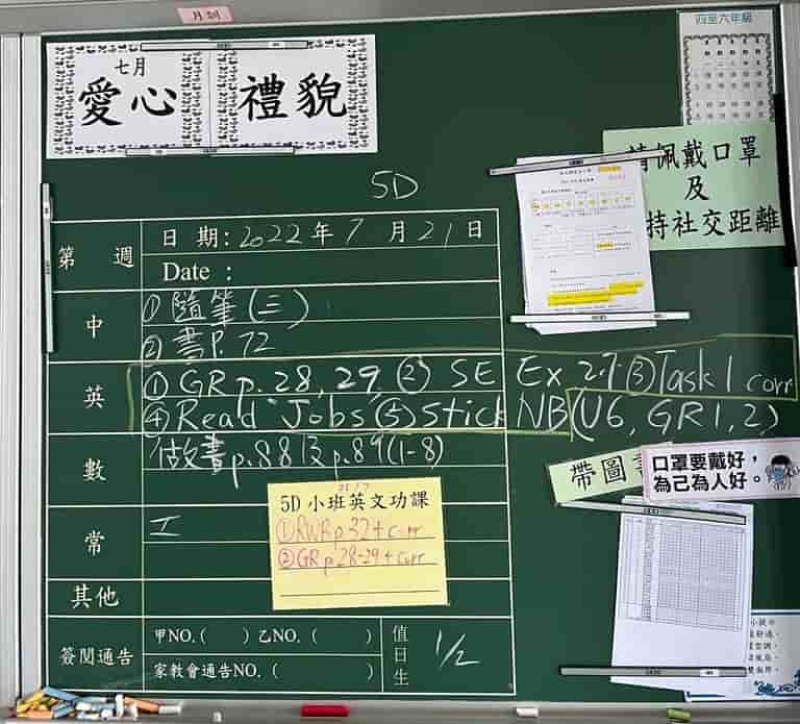 四至六年級
七月
愛心
禮貌
請佩戴口罩
及
持社交距離
5D
第 週
日 期：2022年7月21日
Date :
中
① 隨筆(三)
② 書P.72
英
① GR p.28, 29, ② SE Ex 27 ③ Task 1 corr
④ Read Jobs ⑤ Stick NB (U6, GR1, 2)
數
做書p.88及p.89(1-8)
帶圖書
口罩要戴好，
為己為人好。
常
工
5D 小班英文功課
① RWR p32 + corr
② GR p 28-29 + corr
其他
簽閱通告
甲NO.( ) 乙NO. ( )
家教會通告NO. ( )
值日生
1/2